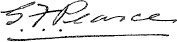 G. F. Pearce